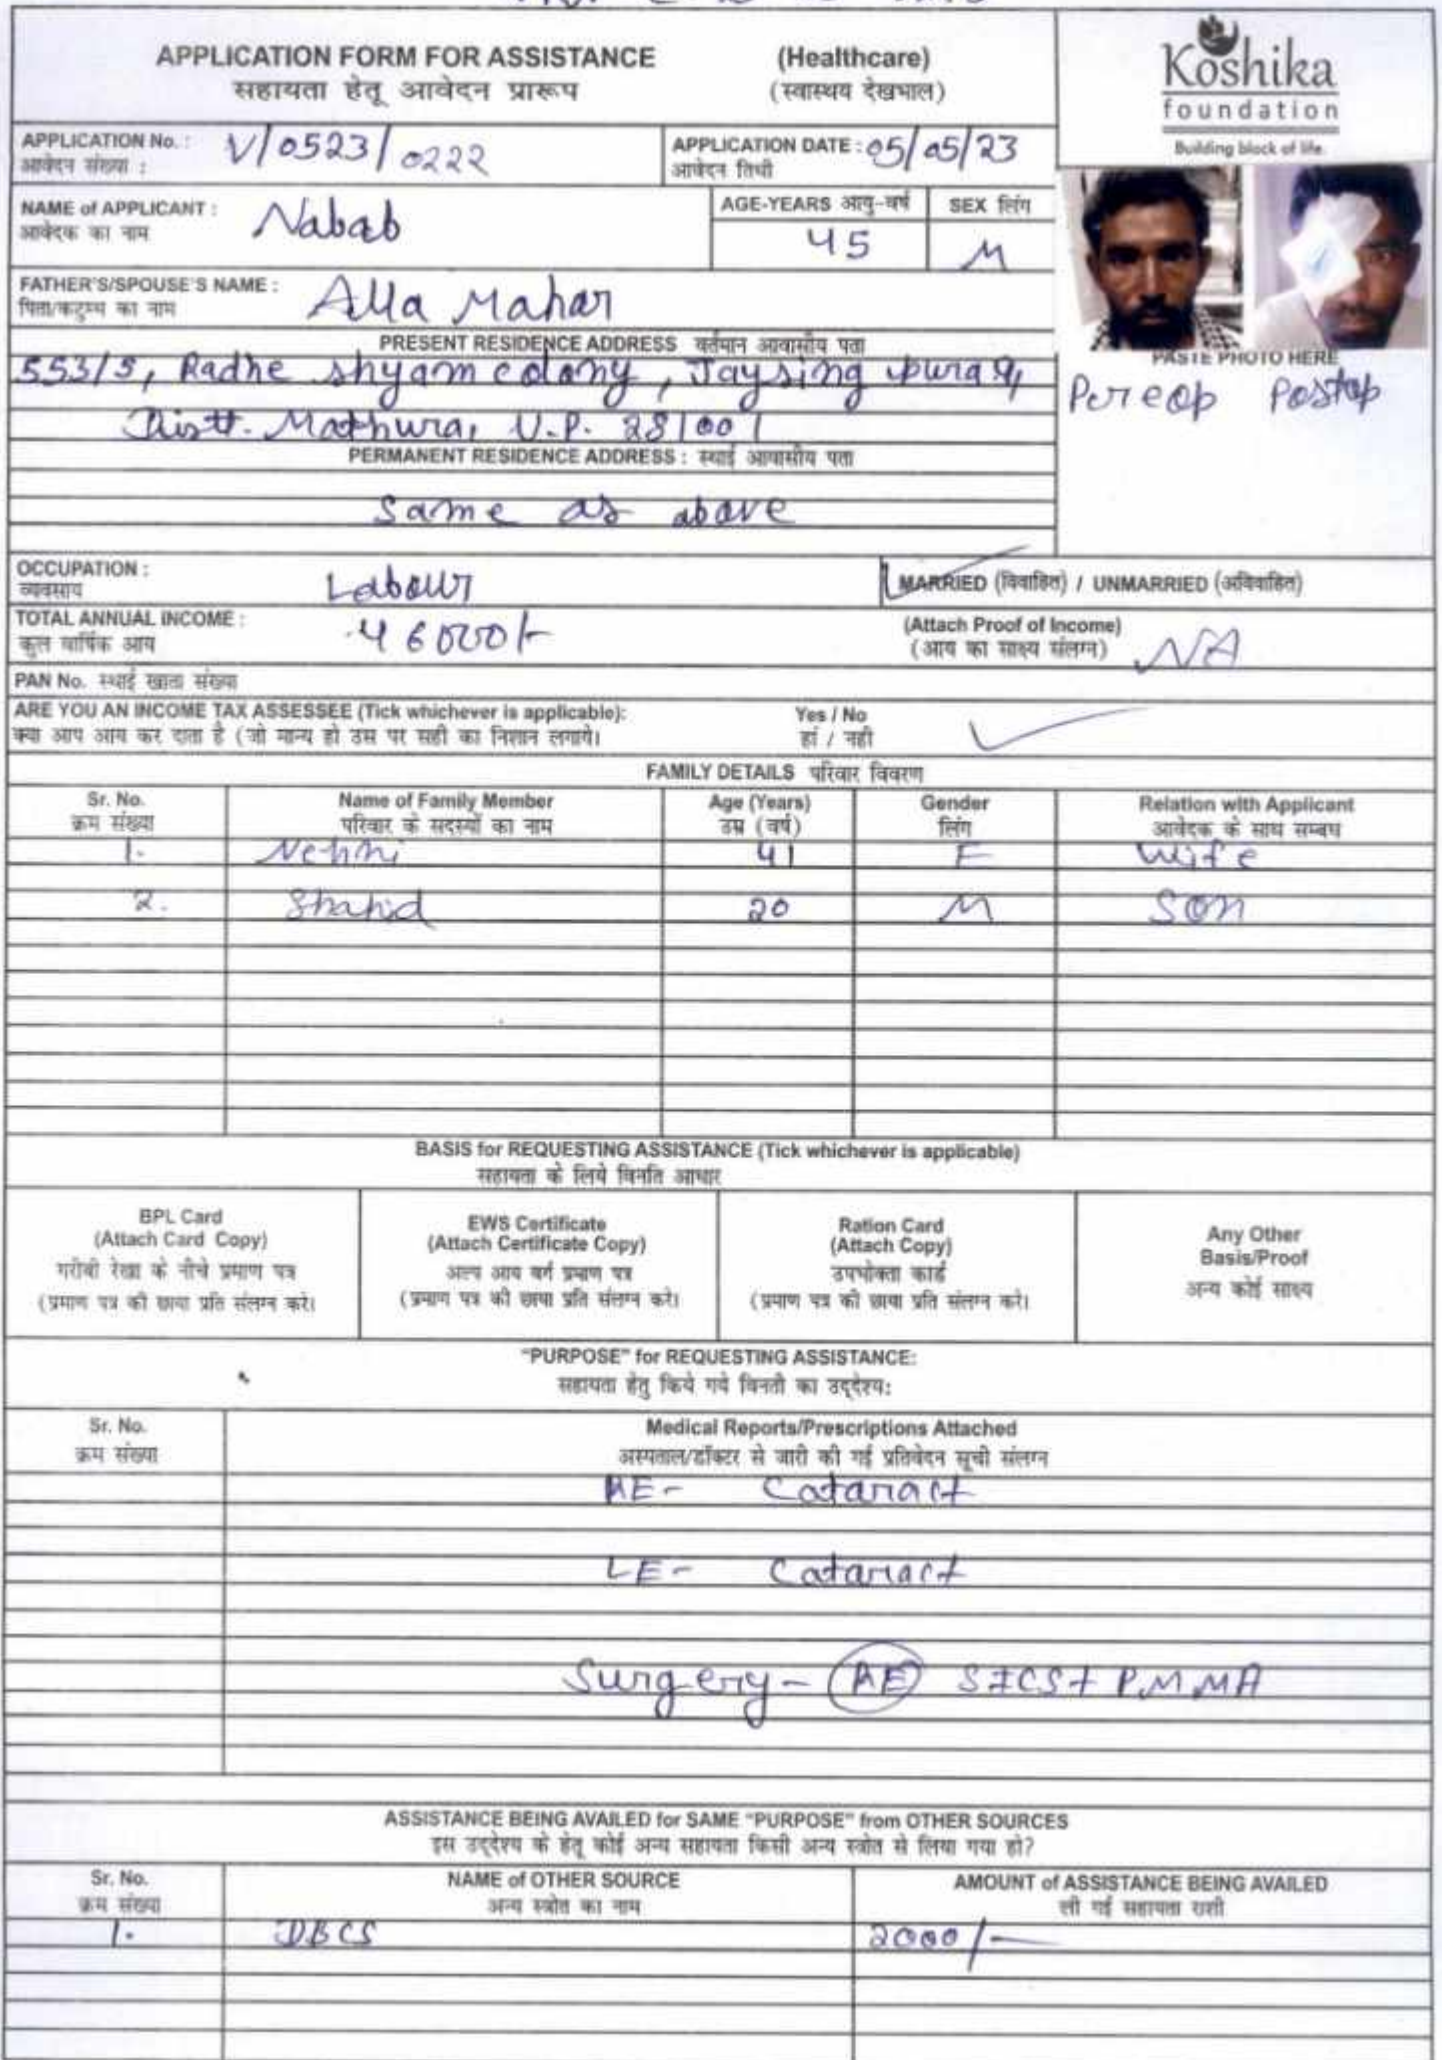 APPLICATION FORM FOR ASSISTANCE (Healthcare)
सहायता हेतू आवेदन प्रारूप (स्वास्थय देखभाल)
Koshika
foundation
Building block of life
APPLICATION No. : V/0523/0222
आवेदन संख्या :
APPLICATION DATE : 05/05/23
आवेदन तिथी
NAME of APPLICANT : Nabab
आवेदक का नाम
AGE-YEARS आयु-वर्ष SEX लिंग
45 M
FATHER'S/SPOUSE'S NAME : Alla Mahar
पिता/कटुम्ब का नाम
PRESENT RESIDENCE ADDRESS वर्तमान आवासीय पता
553/5, Radhe shyam colony, Jaysing pura
Distt. Mathura, U.P. 281001
PASTE PHOTO HERE
Pereop Postop
PERMANENT RESIDENCE ADDRESS : स्थाई आवासीय पता
Same as above
OCCUPATION : Labour
व्यवसाय
MARRIED (विवाहित) / UNMARRIED (अविवाहित)
TOTAL ANNUAL INCOME : 46000/-
कुल वार्षिक आय
(Attach Proof of Income)
(आय का साक्ष्य संलग्न) NA
PAN No. स्थाई खाता संख्या
ARE YOU AN INCOME TAX ASSESSEE (Tick whichever is applicable): Yes / No
क्या आप आय कर दाता है (जो मान्य हो उस पर सही का निशान लगाये। हां / नही
FAMILY DETAILS परिवार विवरण
Sr. No. Name of Family Member Age (Years) Gender Relation with Applicant
क्रम संख्या परिवार के सदस्यों का नाम उम्र (वर्ष) लिंग आवेदक के साथ सम्बध
1. 41 F Wife
2. Shahid 20 M Son
BASIS for REQUESTING ASSISTANCE (Tick whichever is applicable)
सहायता के लिये विनति आधार
BPL Card
(Attach Card Copy)
गरीबी रेखा के नीचे प्रमाण पत्र
(प्रमाण पत्र की छाया प्रति संलग्न करे।
EWS Certificate
(Attach Certificate Copy)
अल्प आय वर्ग प्रमाण पत्र
(प्रमाण पत्र की छाया प्रति संलग्न करे।
Ration Card
(Attach Copy)
उपभोक्ता कार्ड
(प्रमाण पत्र की छाया प्रति संलग्न करे।
Any Other
Basis/Proof
अन्य कोई साक्ष्य
"PURPOSE" for REQUESTING ASSISTANCE:
सहायता हेतु किये गये विनती का उद्देश्य:
Sr. No. Medical Reports/Prescriptions Attached
क्रम संख्या अस्पताल/डॉक्टर से जारी की गई प्रतिवेदन सूची संलग्न
RE- Cataract
LE- Cataract
Surgery- RE SICS + PMMA
ASSISTANCE BEING AVAILED for SAME "PURPOSE" from OTHER SOURCES
इस उद्देश्य के हेतू कोई अन्य सहायता किसी अन्य स्त्रोत से लिया गया हो?
Sr. No. NAME of OTHER SOURCE AMOUNT of ASSISTANCE BEING AVAILED
क्रम संख्या अन्य स्त्रोत का नाम ली गई सहायता राशी
1. DBCS 2000/-